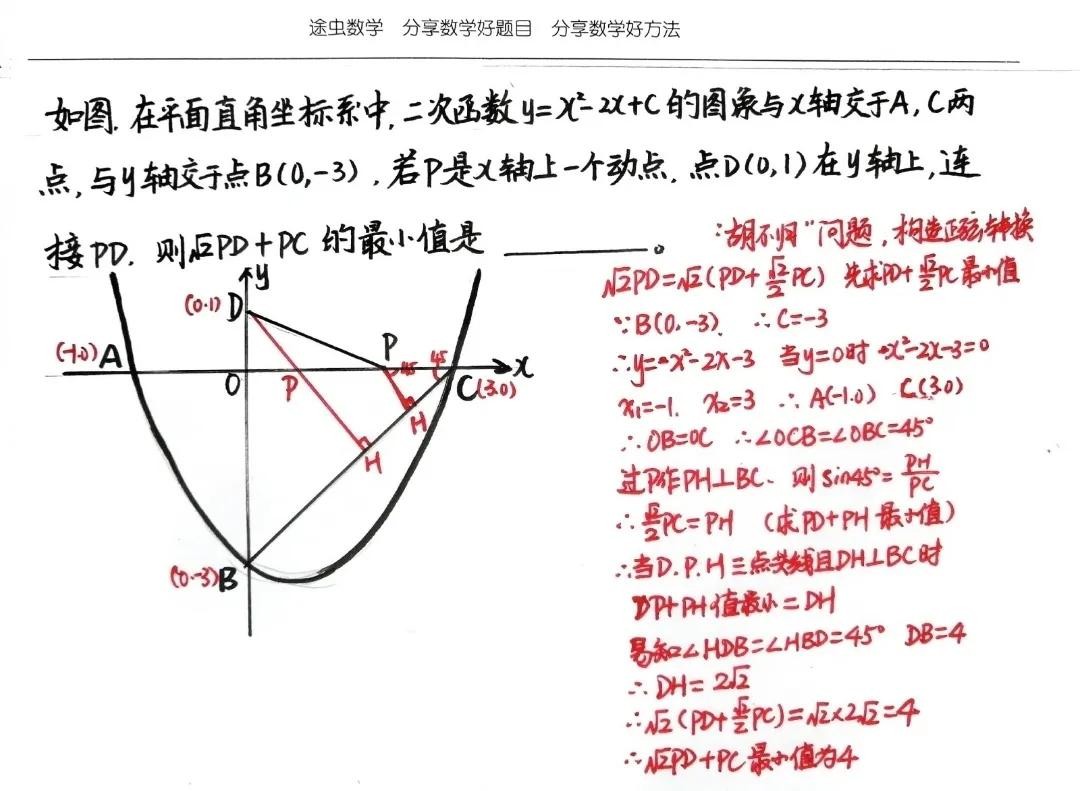 途虫数学 分享数学好题目 分享数学好方法
如图.在平面直角坐标系中,二次函数y=x²-2x+C的图象与x轴交于A,C两
点,与y轴交于点B(0,-3),若P是x轴上一个动点.点D(0,1)在y轴上,连
接PD.则√2PD+PC的最小值是________。
"胡不归"问题,构造正弦转换
√2PD=√2(PD+√2/2PC) 先求PD+√2/2PC最小值
∵B(0,-3) ∴C=-3
∴y=x²-2x-3 当y=0时 x²-2x-3=0
x₁=-1. x₂=3 ∴A(-1.0) C(3.0)
∴OB=OC ∴∠OCB=∠OBC=45°
过P作PH⊥BC、则sin45°=PH/PC
∴√2/2PC=PH (求PD+PH最小值)
∴当D.P.H三点共线且DH⊥BC时
DP+PH值最小=DH
易知∠HDB=∠HBD=45° DB=4
∴DH=2√2
∴√2(PD+√2/2PC)=√2×2√2=4
∴√2PD+PC最小值为4
y
(0.1) D
(-1.0) A
P
45
45
x
O
P
C (3.0)
H
H
(0.-3) B